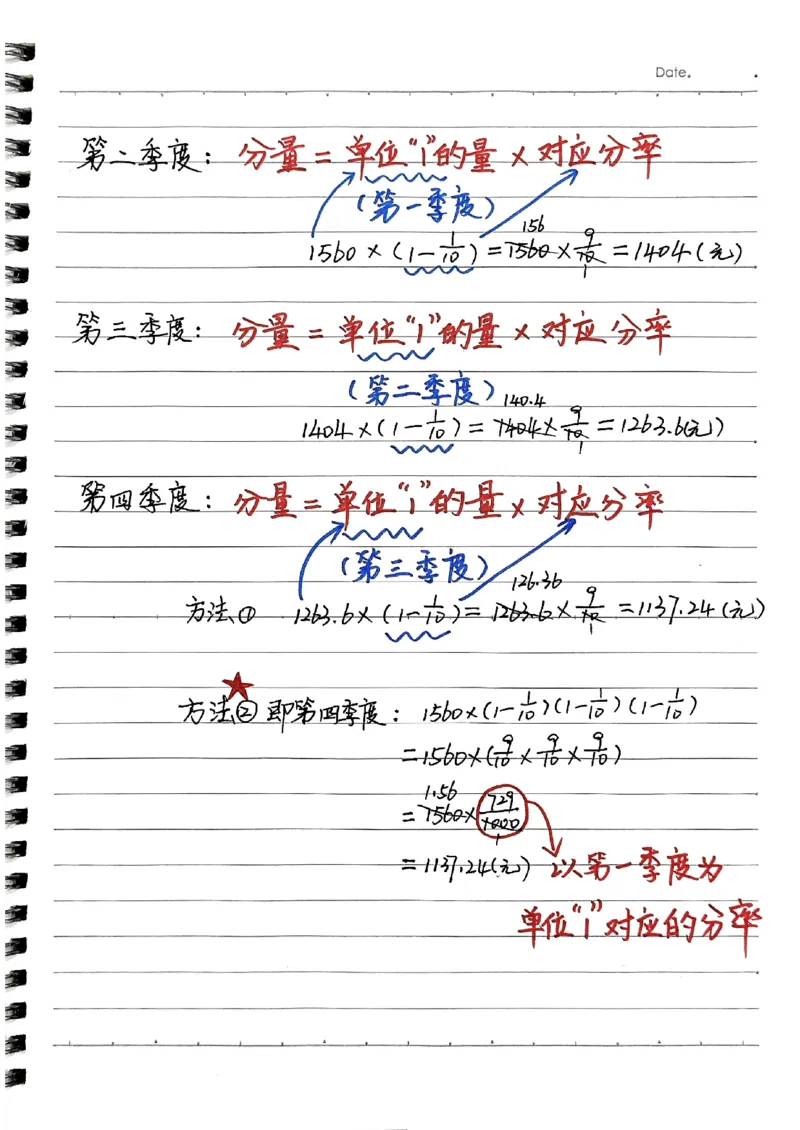 Date.
第二季度：分量＝单位“1”的量×对应分率
（第一季度）
156
1560×(1-1/10)=1560×9/10=1404(元)
1
第三季度：分量＝单位“1”的量×对应分率
（第二季度）
140.4
1404×(1-1/10)=1404×9/10=1263.6(元)
1
第四季度：分量＝单位“1”的量×对应分率
（第三季度）
126.36
方法① 1263.6×(1-1/10)=1263.6×9/10=1137.24(元)
1
方法② 即第四季度：1560×(1-1/10)(1-1/10)(1-1/10)
=1560×(9/10×9/10×9/10)
1.56
=1560×729/1000
1
=1137.24(元) 以第一季度为
单位“1”对应的分率